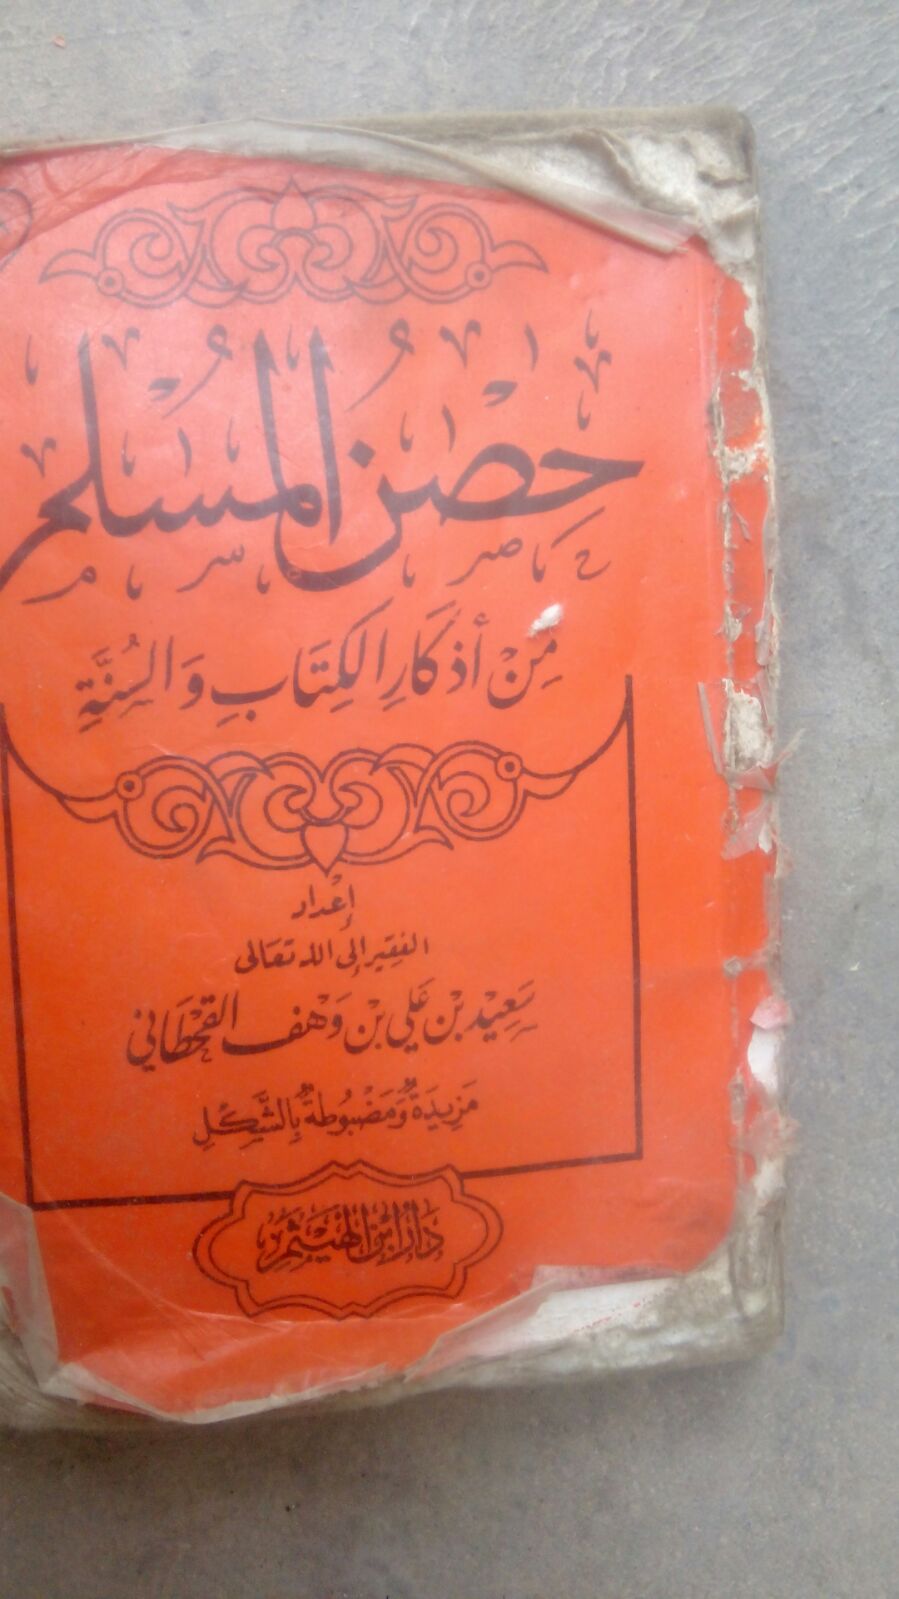 حِصْنُ المُسْلِمِ
مِنْ أَذْكَارِ الكِتَابِ وَالسُّنَّةِ
إعْداد
الفَقِير إلى الله تعَالى
سَعِيْد بْن عَلي بْن وَهف القَحْطَاني
مَزِيدَةٌ وَمَضْبُوطَةٌ بِالشَّكْلِ
دَارُ ابْنِ الهَيْثَمِ